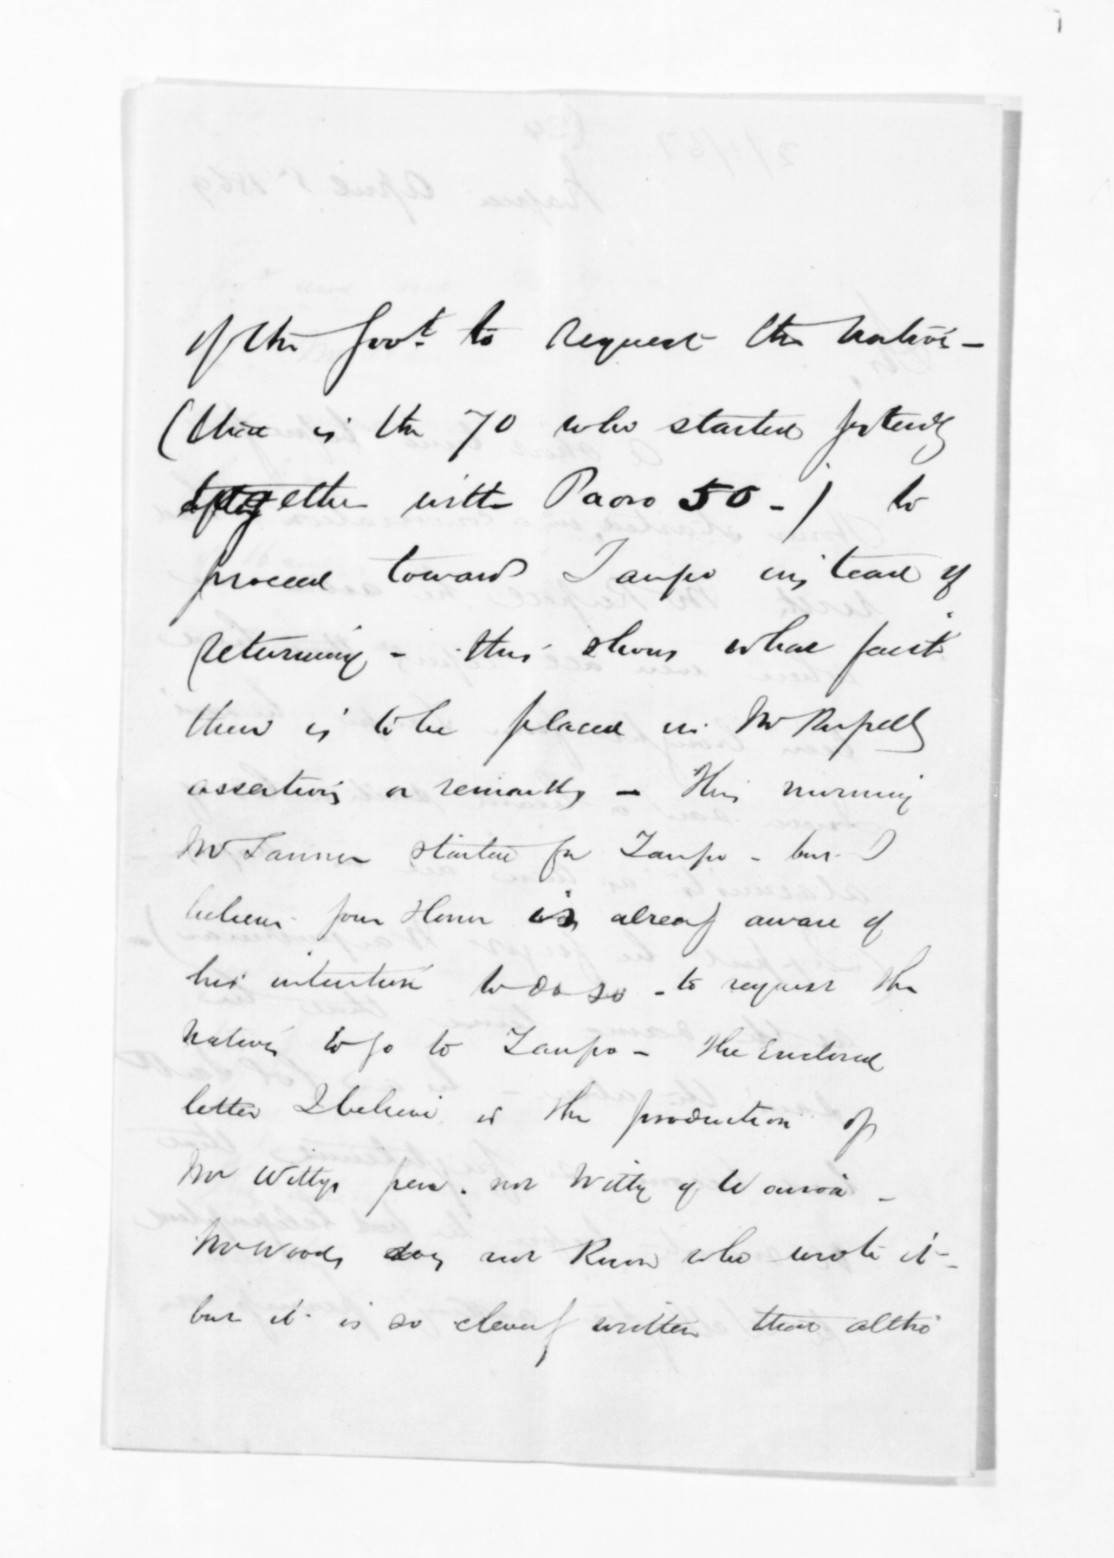 of the Govt. to request the natives -
(that is the 70 who started yesterday
together with Paoro 50 - ) to
proceed towards Taupo instead of
returning - this shows what faith
there is to be placed in Mr Russells
assertions or remarks - This morning
Mr Tanner started for Taupo - but I
believe your Honor is already aware of
his intention to do so - to request the
natives to go to Taupo - The Enclosed
letter I believe is the production of
Mr Wittys pen. not Witty of Wairoa -
Mr Woods does not know who wrote it -
but it is so cleverly written that altho'